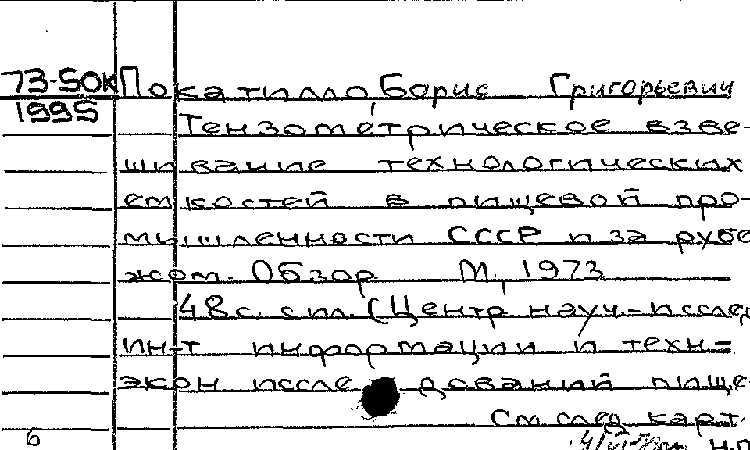 73-50К Покатилло, Борис Григорьевич
1995
Тензометрическое взве-
шивание технологических
емкостей в пищевой про-
мышленности СССР и за рубе
жом. Обзор М., 1973
48с. с ил. (Центр науч.-исслед
ин-т информации и техн.-
экон исследований пище
См. след. карт.
6